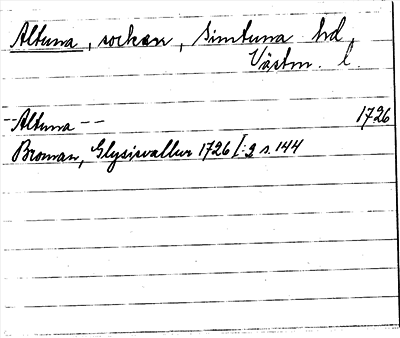 Altuna, socken, Simtuna hd,
Västm. l.
--Altuna-- 1726
Broman, Glysisvallur 1726 I:2 s. 144